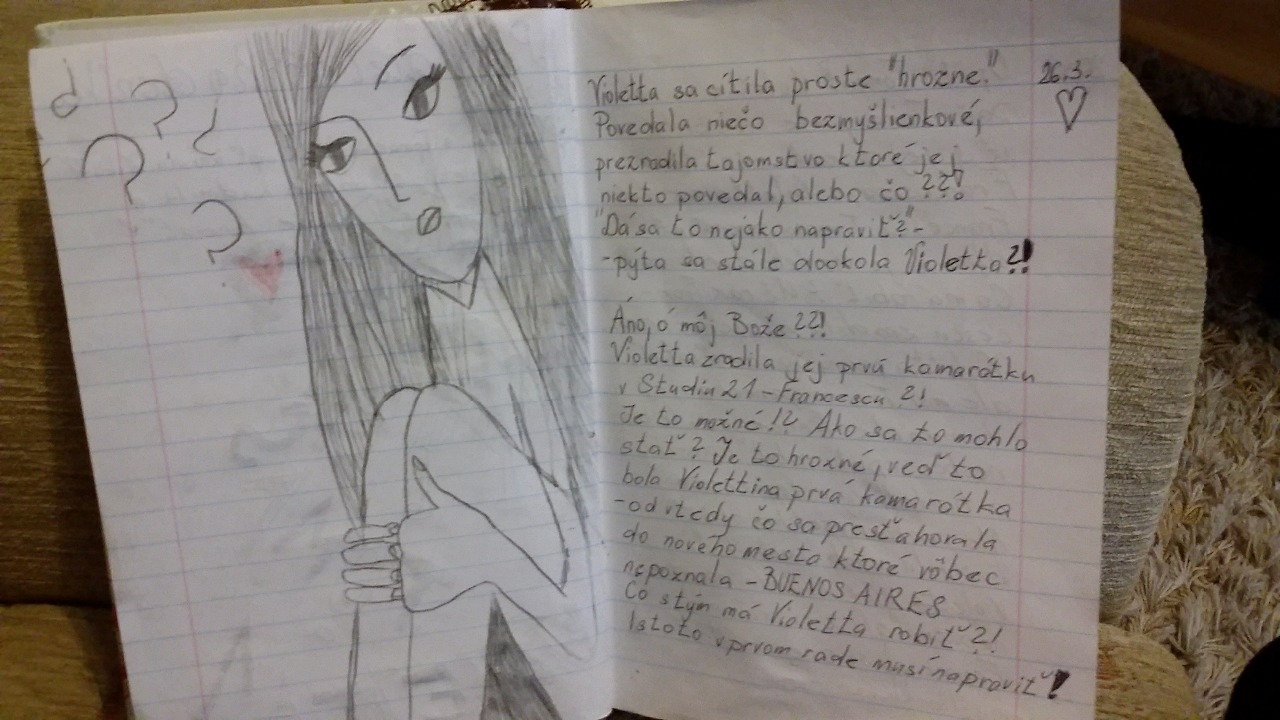 Violetta sa cítila proste "hrozne."
26.3.
Povedala niečo bezmyšlienkové,
prezradila tajomstvo ktoré jej
niekto povedal, alebo čo ??!
"Dá sa to nejako napraviť?"-
-pýta sa stále dookola Violetta?!
Áno, ó môj Bože ??!
Violetta zradila jej prvú kamarátku
v Studiu 21 - Francescu ?!
Je to možné!? Ako sa to mohlo
stať? Je to hrozné, veď to
bola Violettina prvá kamarátka
-od vtedy čo sa presťahovala
do nového mesta ktoré vôbec
nepoznala - BUENOS AIRES
Čo stým má Violetta robiť?!
Istoto vprvom rade musí napraviť!